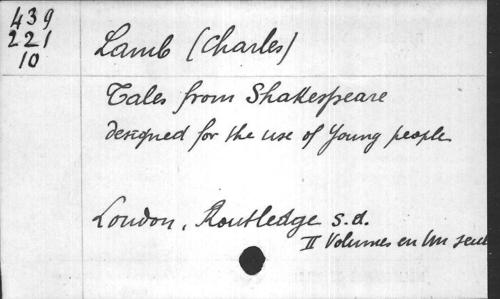 439
221
10
Lamb (Charles)
Tales from Shakespeare
designed for the use of Young people
London, Routledge s.d.
II Volumes en Un seul